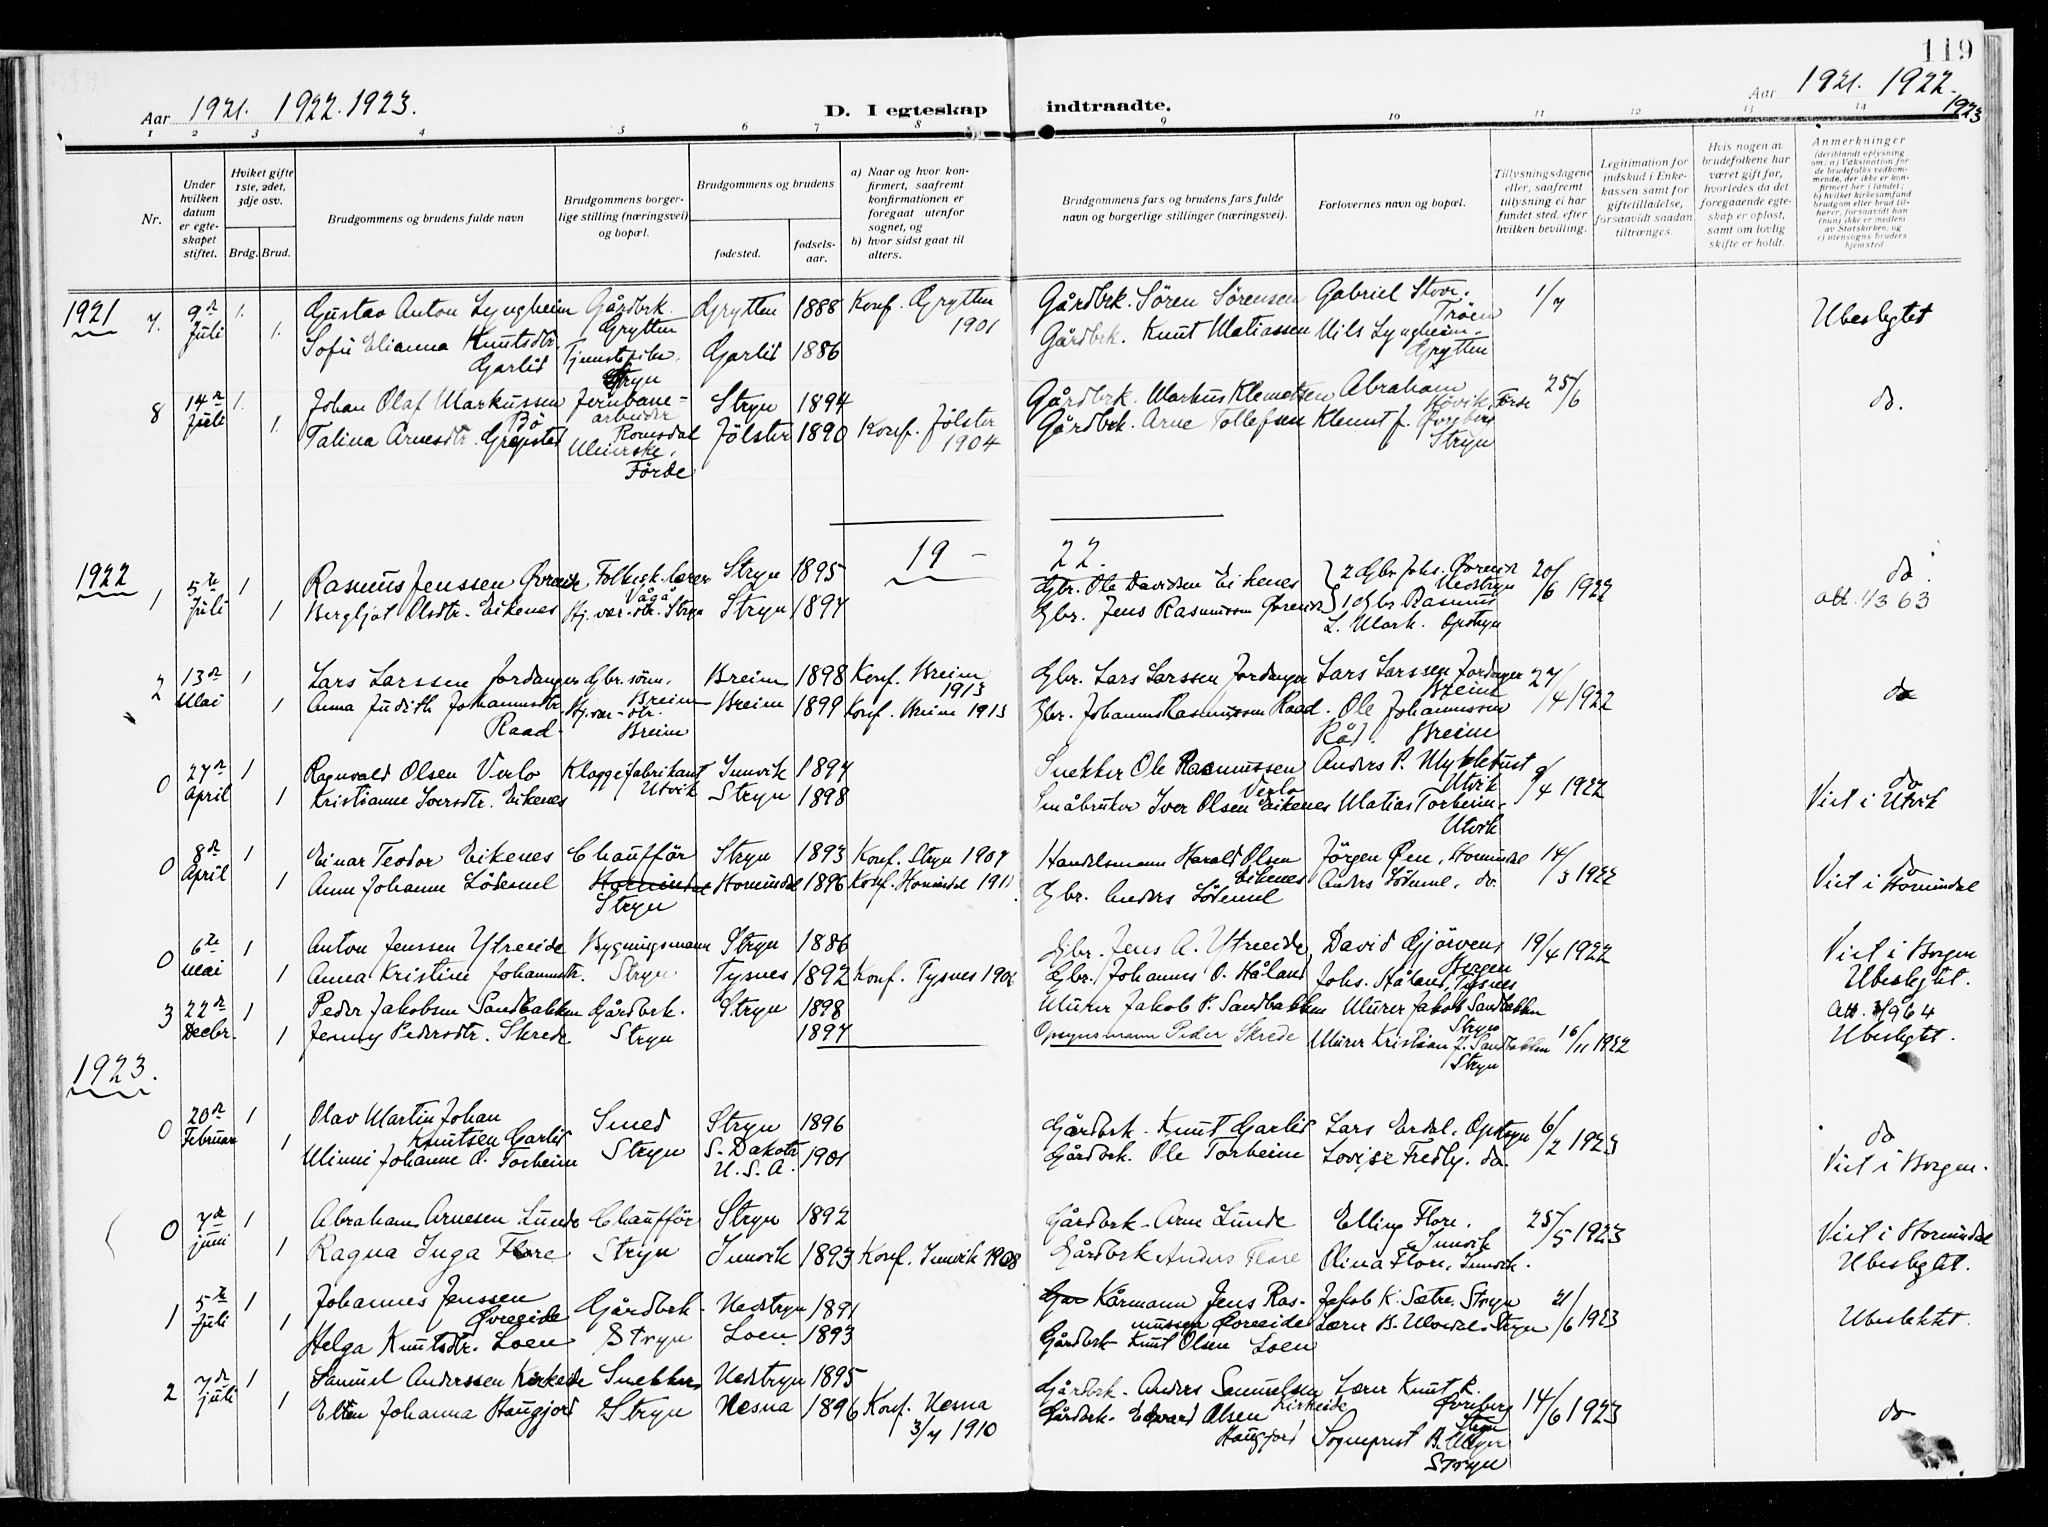 119
Aar 1921. 1922. 1923.
D. I egteskap indtraadte.
Aar 1921. 1922. 1923
1 2 3 4 5 6 7 8 9 10 11 12 13 14
Nr.
Under hvilken datum er egteskapet stiftet.
Hviket gifte 1ste, 2det, 3dje osv.
Brdg. Brud.
Brudgommens og brudens fulde navn
Brudgommens borgerlige stilling (næringsvei) og bopæl.
Brudgommens og brudens
fødested.
fødselsaar.
a) Naar og hvor konfirmert, saafremt konfirmationen er foregaat utenfor sognet, og
b) hvor sidst gaat til alters.
Brudgommens fars og brudens fars fulde navn og borgerlige stillinger (næringsvei).
Forlovernes navn og bopæl.
Tillysningsdagene eller, saafremt tillysning ei har fundet sted, efter hvilken bevilling.
Legitimation for indskud i Enkekassen samt for giftetilladelse, forsaavidt saadan tiltrænges.
Hvis nogen at brudefolkene har været gift før, hvorledes da det foregaaende egteskap er opløst, samt om lovlig skifte er holdt.
Anmerkninger
(deriblandt oplysning om: a) Vaksination for de brudefolks vedkommende, der ikke er konfirmert her i landet; b) hvilket kirkesamfund brudgom eller brud tilhører, forsaavidt han (hun) ikke er medlem av Statskirken, og c) utensogns bruders hjemsted
1921
7. 9de Juli 1. Gustav Anton Lyngheim Gårdbrk. Grytten Grytten 1888 Konf. Grytten 1901 Gårdbrk. Sören Sörensen Gabriel Stor-Tröen 1/7 Ubeslegtet
1. Sofie Elianna Knutsdtr. Garlid Stryn Garlid 1886 Gårdbrk. Knut Matiassen Nils Lyngheim. Grytten
8 14de Juli 1. Johan Olaf Markussen Bö Jernbanearbeider Romsdal Stryn 1894 Gårdbrk. Markus Klemetsen Abraham Förde 25/6 do.
1. Talina Arnesdtr. Grepstad Meierske. Förde Jölster 1890 Konf. Jölster 1904 Gårdbrk. Arne Tollefsen Stryn
19 – 22.
1922
1 5te Juli 1 Rasmus Jenssen Övreeide. Folkesk. lærer Vågå Stryn 1895 Gbr. Ole Davidsen Eikenes 2 Gbr. Johs. Övreeide Nedstryn 20/6 1922 do.
1 Bergljot Olsdtr. Eikenes Stryn Stryn 1897 Gbr. Jens Rasmussen Övreeide 1 Gbr. Rasmus L. Mork. Opstryn att. 1/3 63
2 13de Mai 1 Lars Larssen Jordanger Gbr. sönn. Breim Breim 1898 Konf. Breim 1913 Gbr. Lars Larssen Jordanger Lars Larssen Jordanger Breim 27/4 1922 do
1 Anna Judith Johannesdtr. Raad Breim Breim 1899 Konf. Breim 1913 Gbr. Johannes Rasmussen Raad. Ole Johannessen Råd. Breim
0 27de April 1 Ragnvald Olsen Verlo Klaggefabrikant Utvik Innvik 1897 Snekker Ole Rasmussen Verlo Anders P. Myklebust Utvik 9/4 1922 do
1 Kristianne Iversdtr. Eikenes Stryn 1898 Småbruker Iver Olsen Eikenes Matias Torheim. Utvik Viet i Utvik
0 8de April 1 Einar Teodor Eikenes Chaufför Stryn Stryn 1893 Konf. Stryn 1907 Handelsmann Harald Olsen Eikenes Jörgen Öen, Hornindal 14/3 1922 do
1 Anne Johanne Lödemel Hornindal 1896 Konf. Hornindal 1911 Gbr. Anders Lödemel Anders Lödemel. do. Viet i Hornindal
0 6te Mai 1 Anton Jenssen Ytreeide Bygningsmann Stryn 1886 Gbr. Jens A. Ytreeide, David Gjörven, Bergen 19/4 1922 Viet i Bergen
1 Anna Kristine Johannesdtr. Stryn Tysnes 1892 Konf. Tysnes 1906 Gbr. Johannes O. Håland Johs. Håland, Tysnes Ubeslegtet.
3 22de Decbr. 1 Peder Jakobsen Sandbakken Gårdbrk. Stryn 1898 Murer Jakob P. Sandbakken Murer Jakob Sandbakken Stryn Att. 1964
1 Jenny Pedersdtr. Skrede Stryn 1897 Opsynsmann Peder Skrede Murer Kristian J. Sandbakken Stryn 16/11 1922 Ubeslegtet.
1923.
0 20de Februar 1 Olav Martin Johan Knutsen Garlid Smed Stryn 1896 Gårdbrk. Knut Garlid Lars Erdal, Opstryn 6/2 1923 do
1 Minni Johanne O. Torheim Stryn S. Dakota U.S.A. 1901 Gårdbrk. Ole Torheim Lovise Fredly. do. Viet i Bergen.
0 7de juni 1 Abraham Arnesen Lunde Chaufför Stryn 1892 Gårdbrk. Arne Lunde Elling Flore. Innvik 25/5 1923 Viet i Hornindal
1 Ragna Inga Flore Stryn Innvik 1893 Konf. Innvik 1908 Gårdbrk Anders Flore Olina Flore, Innvik. Ubeslegtet.
1 5te Juli 1 Johannes Jenssen Övreeide Gårdbrk Nedstryn 1891 Kårmann Jens Rasmussen Övreeide Jakob K. Sætre. Stryn 21/6 1923 Ubeslektet.
1 Helga Knutsdtr. Loen Stryn Loen 1893 Gårdbrk Knut Olsen Loen Lærer Stryn
2 7de juli 1 Samuel Anderssen Kirkeide Snekker Nedstryn 1895 Gårdbrk. Anders Samuelsen Kirkeide Lærer Knut R. Övreberg Stryn 14/6 1923 do
1 Ellen Johanna Haugjord Stryn Nesna 1896 Konf. Nesna 3/7 1910 Gårdbrk. Edvard Olsen Haugjord Sogneprest Stryn